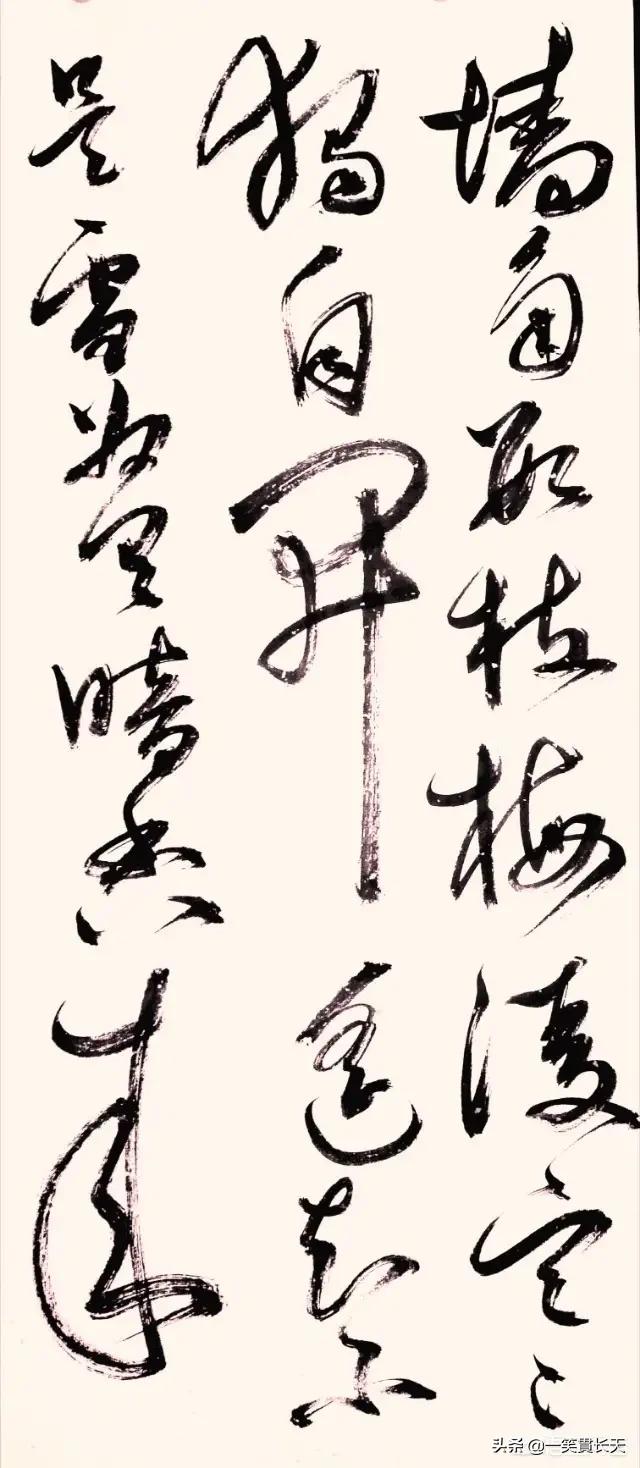 墙角数枝梅凌寒
独自开遥知不
是雪为有暗香来
头条 @一笑貫长天